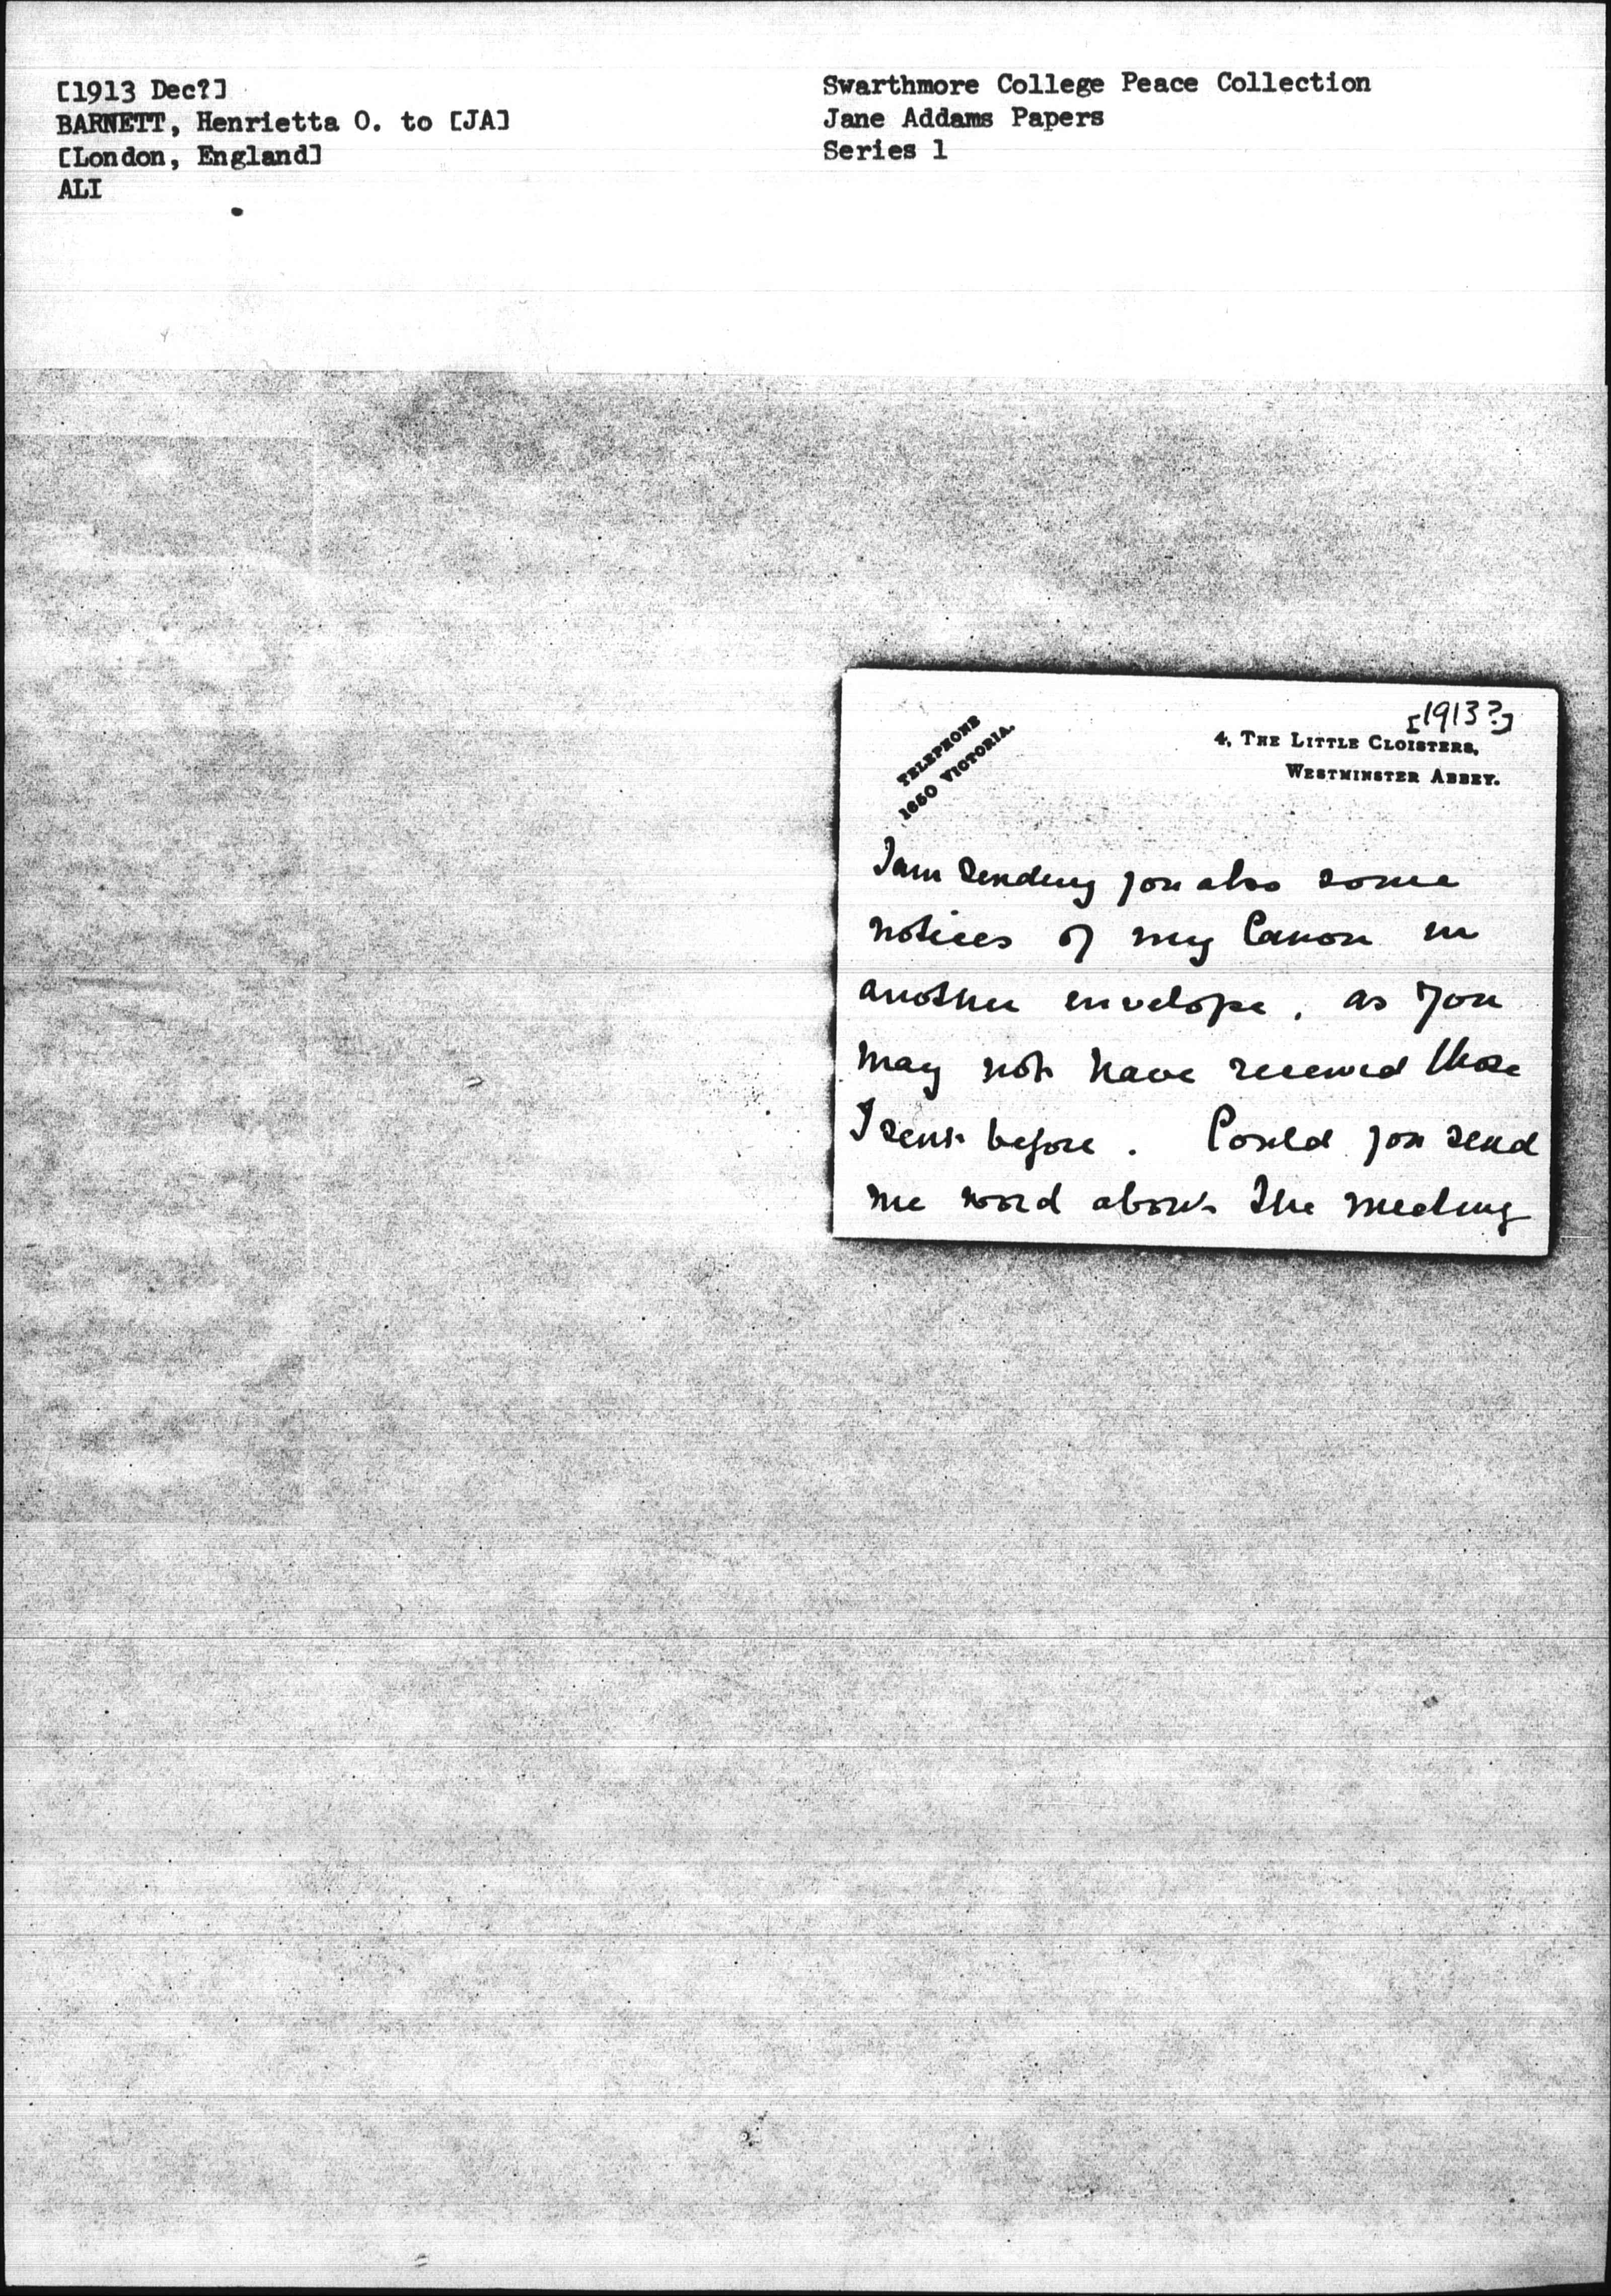 [1913 Dec?]
BARNETT, Henrietta O. to [JA]
[London, England]
ALI
Swarthmore College Peace Collection
Jane Addams Papers
Series 1
[1913?]
TELEPHONE
1650 VICTORIA.
4, THE LITTLE CLOISTERS,
WESTMINSTER ABBEY.
I am sending you also some
notices of my Canon in
another envelope, as you
may not have received those
I sent before. Could you send
me word about the meeting